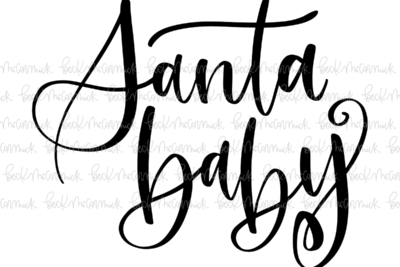 Santa
baby